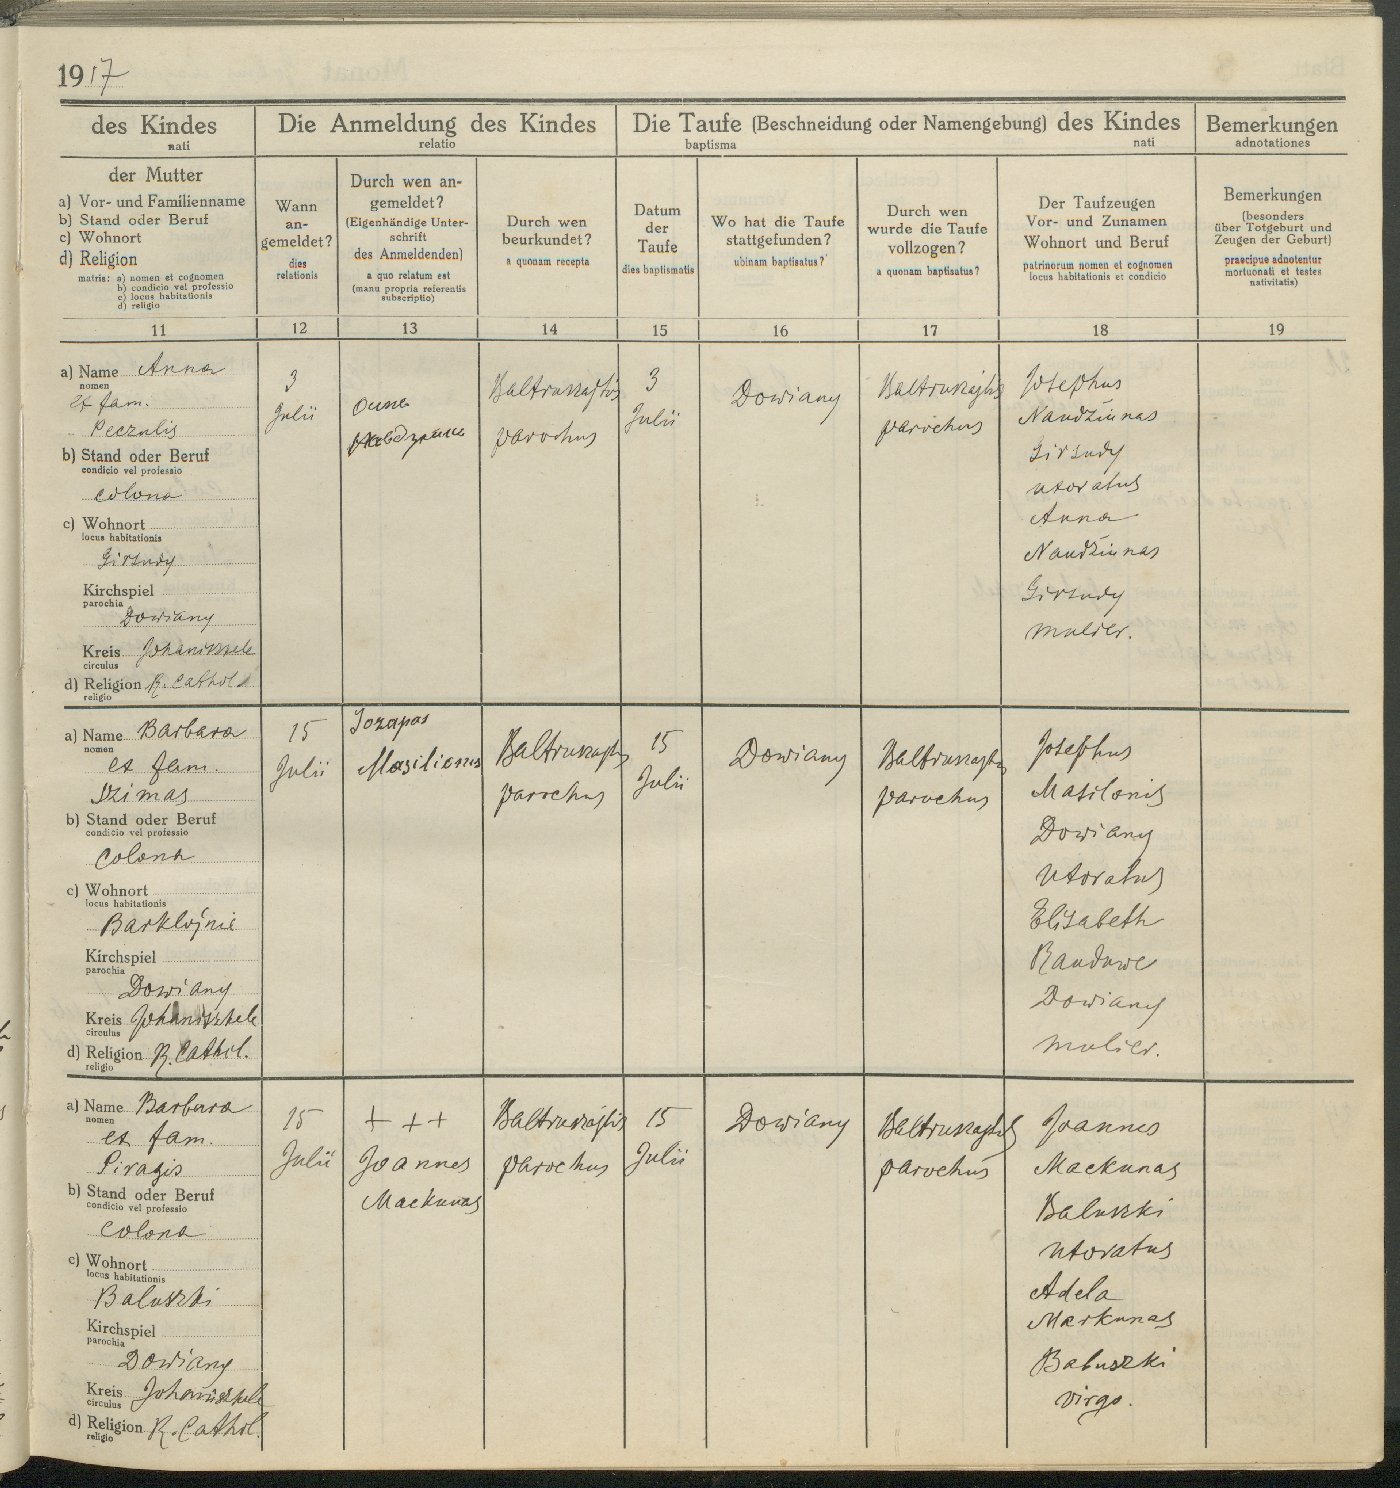 1917
des Kindes
nati
Die Anmeldung des Kindes
relatio
Die Taufe (Beschneidung oder Namengebung) des Kindes
baptisma nati
Bemerkungen
adnotationes
der Mutter
a) Vor- und Familienname
b) Stand oder Beruf
c) Wohnort
d) Religion
matris: a) nomen et cognomen
b) condicio vel professio
c) locus habitationis
d) religio
Wann
an-
gemeldet?
dies
relationis
Durch wen an-
gemeldet?
(Eigenhändige Unter-
schrift
des Anmeldenden)
a quo relatum est
(manu propria referentis
subscriptio)
Durch wen
beurkundet?
a quonam recepta
Datum
der
Taufe
dies baptismatis
Wo hat die Taufe
stattgefunden?
ubinam baptisatus?
Durch wen
wurde die Taufe
vollzogen?
a quonam baptisatus?
Der Taufzeugen
Vor- und Zunamen
Wohnort und Beruf
patrinorum nomen et cognomen
locus habitationis et condicio
Bemerkungen
(besonders
über Totgeburt und
Zeugen der Geburt)
praecipue adnotentur
mortuonati et testes
nativitatis)
11 12 13 14 15 16 17 18 19
a) Name Anna
nomen
et fam.
Peczulis
b) Stand oder Beruf
condicio vel professio
colona
c) Wohnort
locus habitationis
Girsudy
Kirchspiel
parochia
Dowiany
Kreis Johaniszkele
circulus
d) Religion R. Cathol
religio
3
Julii
Baltruszajtis
parochus
3
Julii
Dowiany
Baltruszajtis
parochus
Josephus
Naudžiunas
Girsudy
uxoratus
Anna
Naudžiunas
Girsudy
mulier.
a) Name Barbara
nomen
et fam.
Szimas
b) Stand oder Beruf
condicio vel professio
Colona
c) Wohnort
locus habitationis
Barklojnie
Kirchspiel
parochia
Dowiany
Kreis Johaniszkele
circulus
d) Religion R. Cathol.
religio
15
Julii
Jozapas
Masilionis
Baltruszajtis
parochus
15
Julii
Dowiany
Baltruszajtis
parochus
Josephus
Masilonis
Dowiany
Uxoratus
Elisabeth
Randuwe
Dowiany
mulier.
a) Name Barbara
nomen
et fam.
Piragis
b) Stand oder Beruf
condicio vel professio
Colona
c) Wohnort
locus habitationis
Baluszki
Kirchspiel
parochia
Dowiany
Kreis Johaniszkele
circulus
d) Religion R. Cathol.
religio
15
Julii
+ + +
Joannes
Mackunas
Baltruszajtis
parochus
15
Julii
Dowiany
Baltruszajtis
parochus
Joannes
Mackunas
Baluszki
Uxoratus
Adela
Mackunas
Baluszki
virgo.